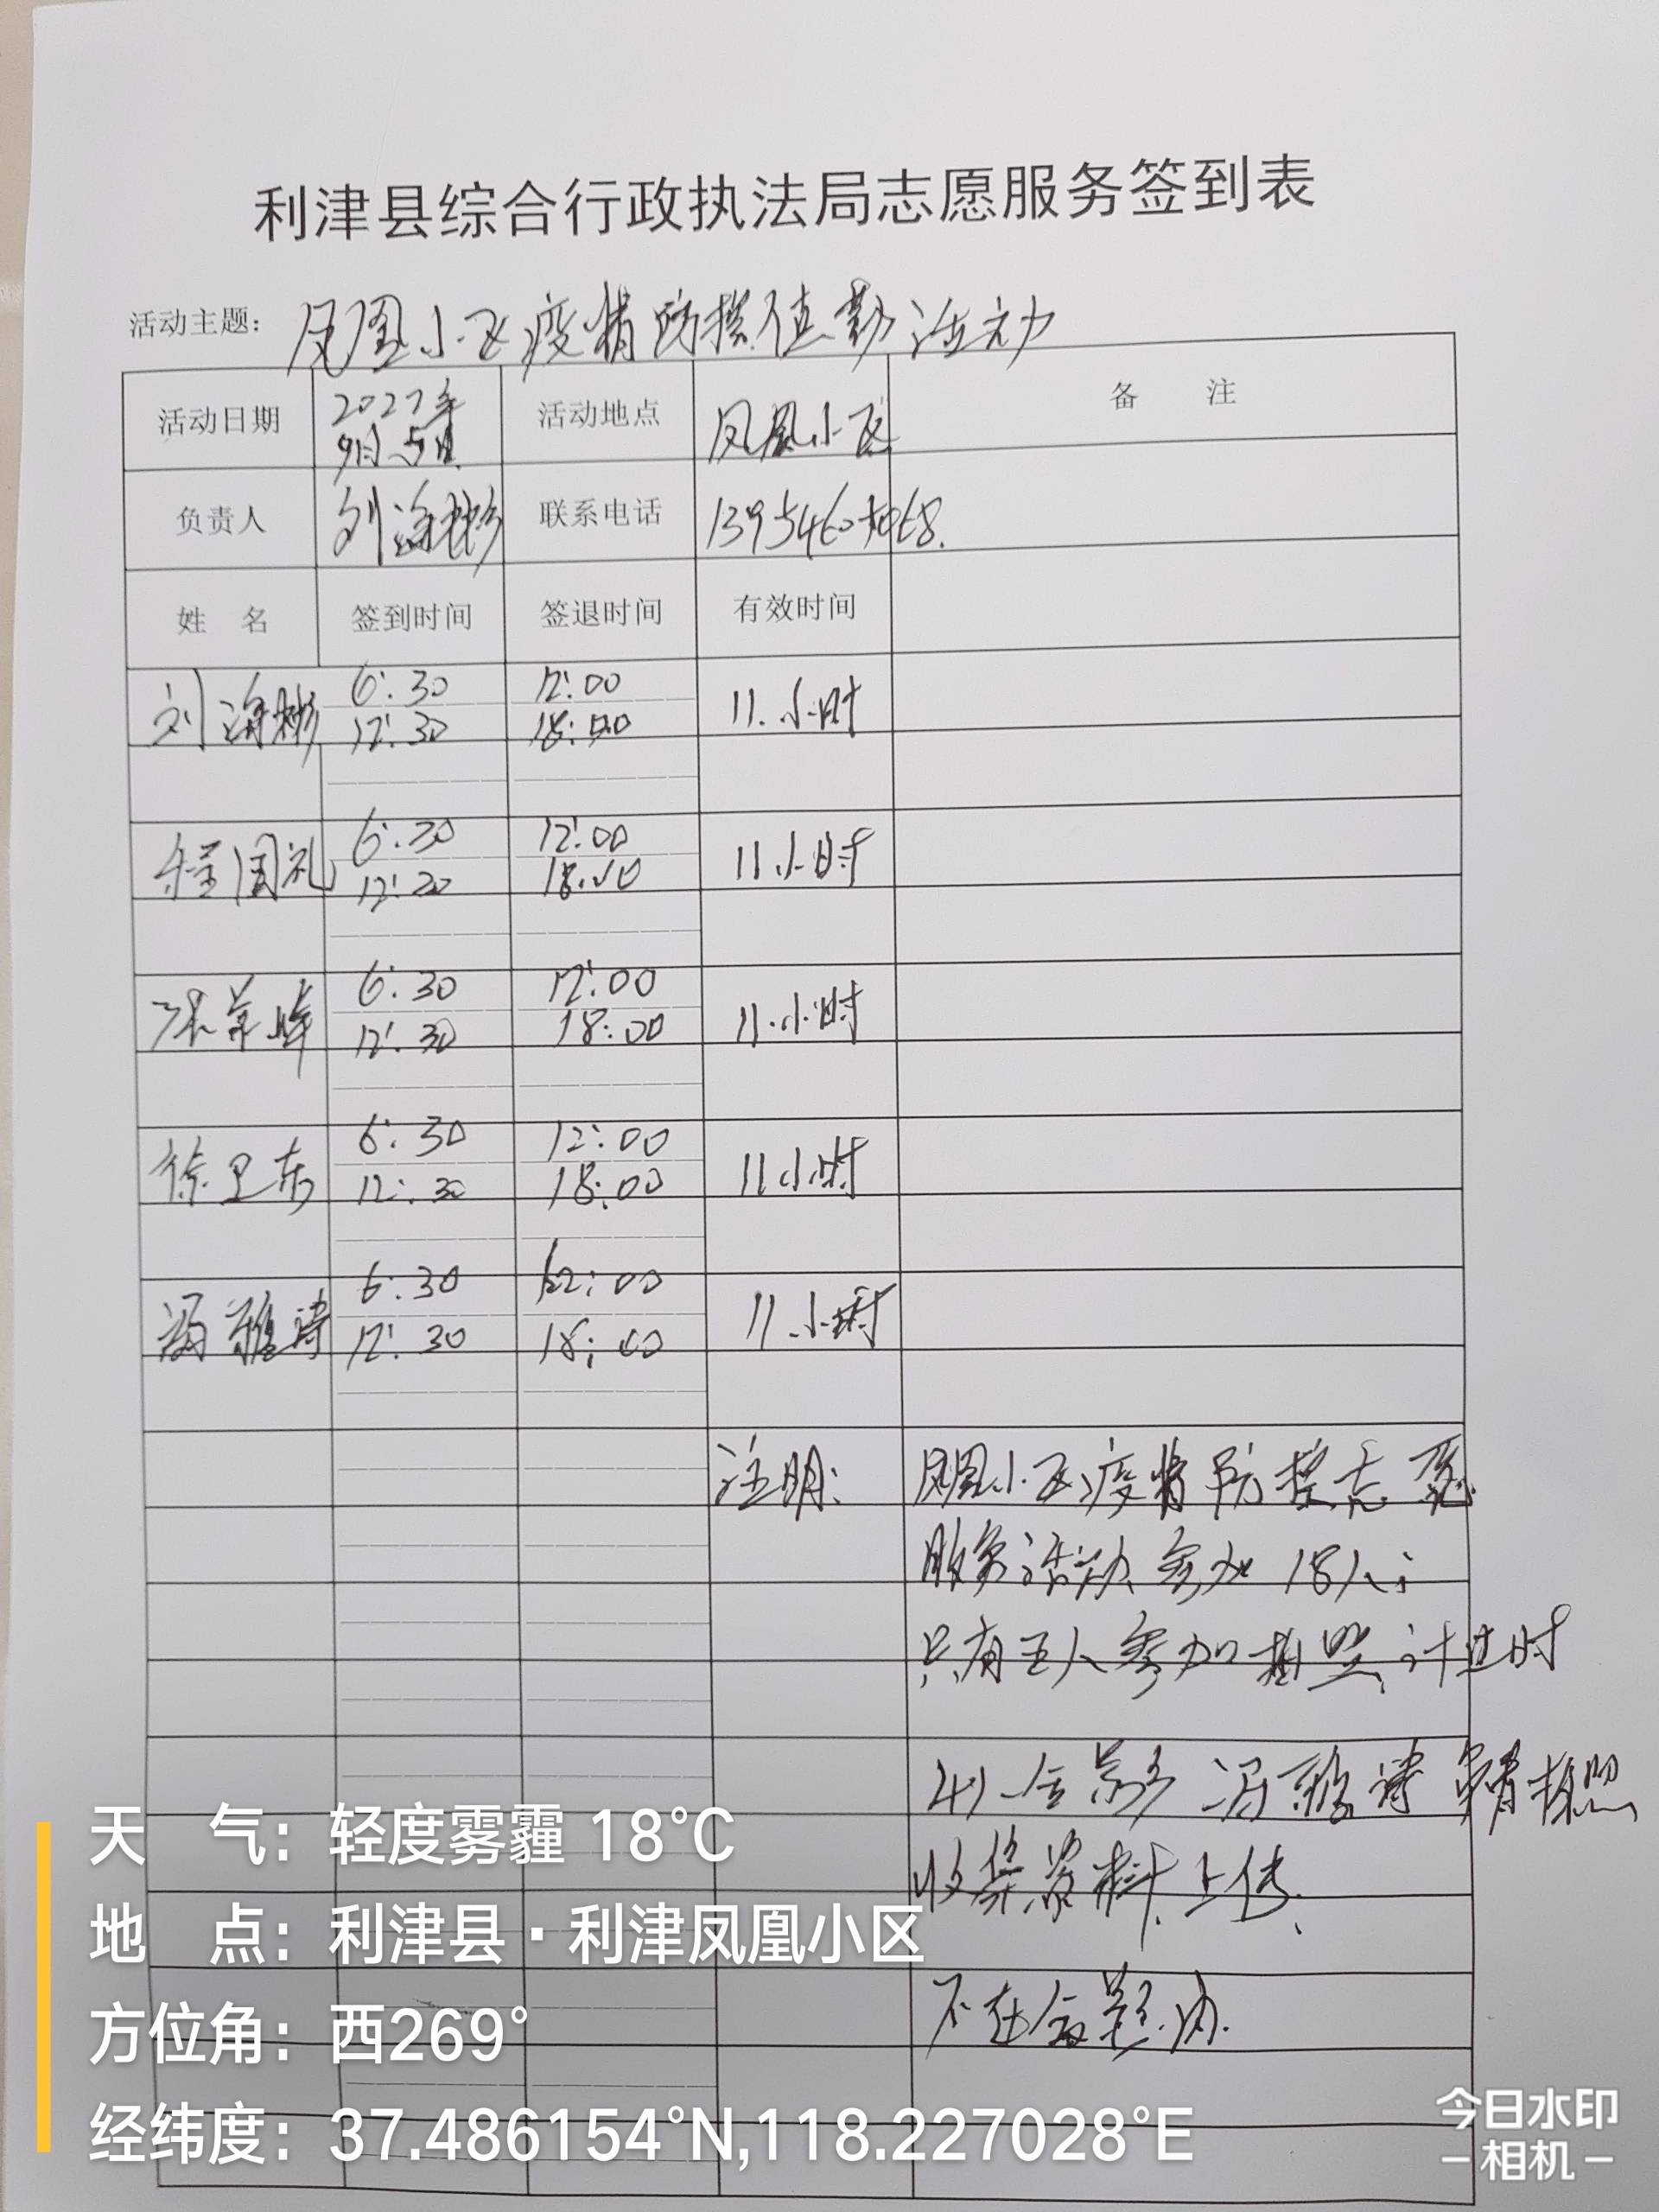 利津县综合行政执法局志愿服务签到表
活动主题: 凤凰小区疫情防控值勤活动
活动日期 202 年 活动地点 凤凰小区 备 注
9月 5日
负责人 刘海彬 联系电话
姓 名 签到时间 签退时间 有效时间
刘海彬 6:30 12:00 11.小时
12:30 18:00
程国礼 6:30 12:00 11小时
12:30 18:00
张 峰 6:30 12:00 11.小时
12:30 18:00
徐卫东 6:30 12:00 11小时
12:30 18:00
冯雅诗 6:30 12:00 11.小时
12:30 18:00
注明: 凤凰小区疫情防控志愿
服务活动参加18人;
只有五人参加 计过时
合影 冯雅诗 拍照
收集资料上传.
不在合影内.
天 气: 轻度雾霾 18°C
地 点: 利津县·利津凤凰小区
方位角: 西269°
经纬度: 37.486154°N,118.227028°E
今日水印
-相机-